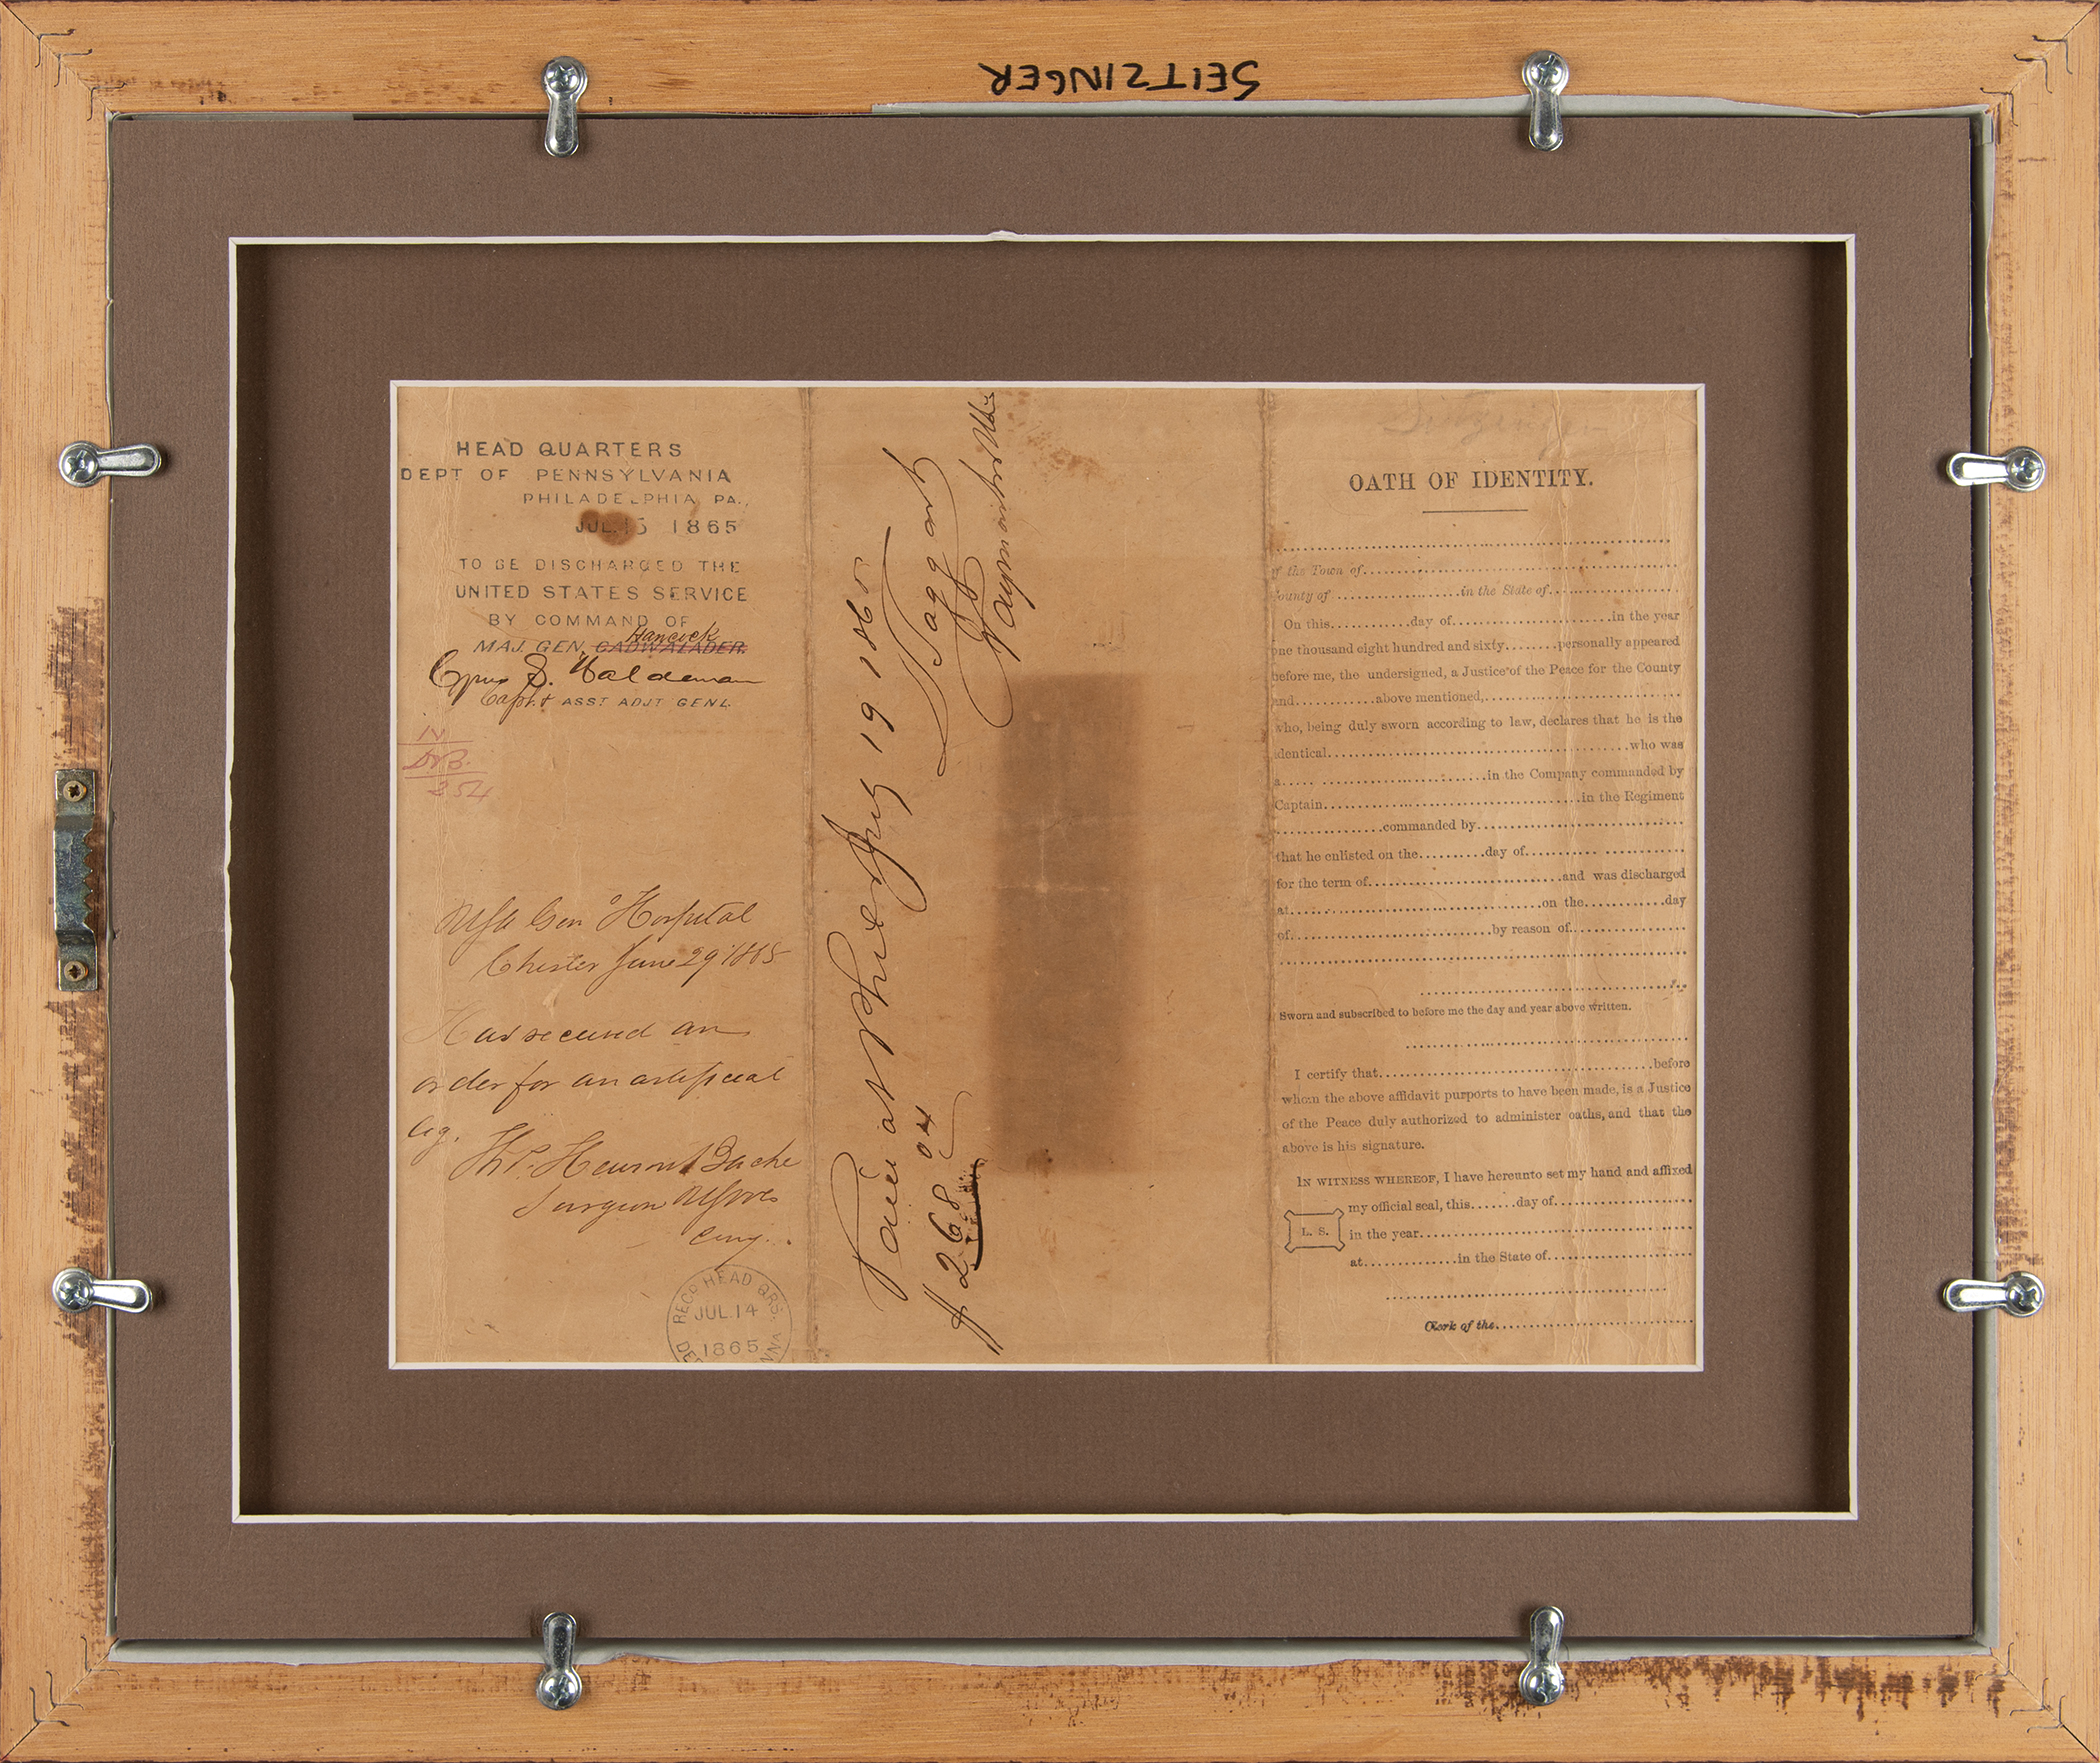 SEITZINGER
HEAD QUARTERS
DEPT OF PENNSYLVANIA
PHILADELPHIA, PA.,
JUL. 1865
TO BE DISCHARGED THE
UNITED STATES SERVICE
BY COMMAND OF
Hancock
MAJ. GEN. CADWALADER.
Cyrus S. Haldeman
Capt & ASST ADJT GENL.
254
USA Gen Hospital
Chester June 29 1865
Has secured an
order for an artificial
leg.
Bache
Surgeon
Comg.
RECD HEAD QRS.
JUL. 14
1865
Paid at July 19 1865
$268 04
Taggart
Paymaster USA
OATH OF IDENTITY.
of the Town of
County of in the State of
On this day of in the year
one thousand eight hundred and sixty personally appeared
before me, the undersigned, a Justice of the Peace for the County
and above mentioned,
who, being duly sworn according to law, declares that he is the
identical who was
a in the Company commanded by
Captain in the Regiment
commanded by
that he enlisted on the day of
for the term of and was discharged
at on the day
of by reason of
Sworn and subscribed to before me the day and year above written.
I certify that before
whom the above affidavit purports to have been made, is a Justice
of the Peace duly authorized to administer oaths, and that the
above is his signature.
IN WITNESS WHEREOF, I have hereunto set my hand and affixed
my official seal, this day of
L. S. in the year
at in the State of
Clerk of the